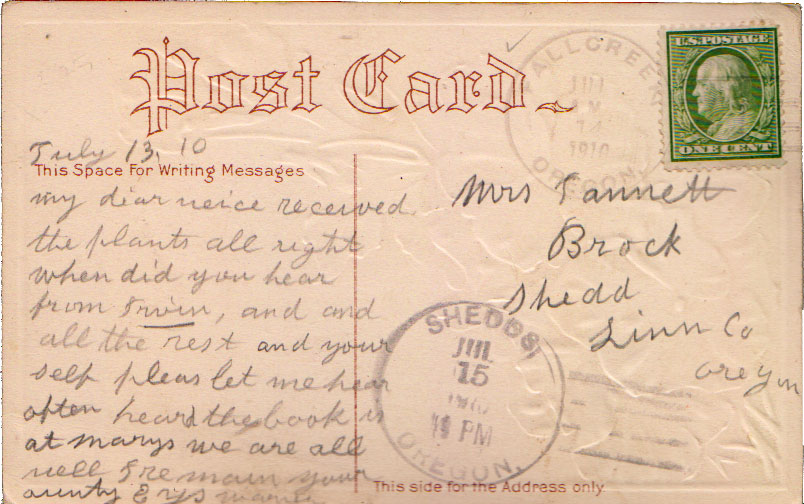 Post Card
July 13, 10
This Space For Writing Messages
my diar neice received
the plants all right
when did you hear
from Irwin, and and
all the rest and your
self pleas let me hear
often heard the book is
at marys we are all
well I remain your
aunty
ALLCREEK
JUL
14
1910
OREGON
U.S. POSTAGE
ONE CENT
Mrs Fannett
Brock
Shedd
Linn Co
oregon
SHEDDS,
JUL
15
PM
OREGON.
This side for the Address only.